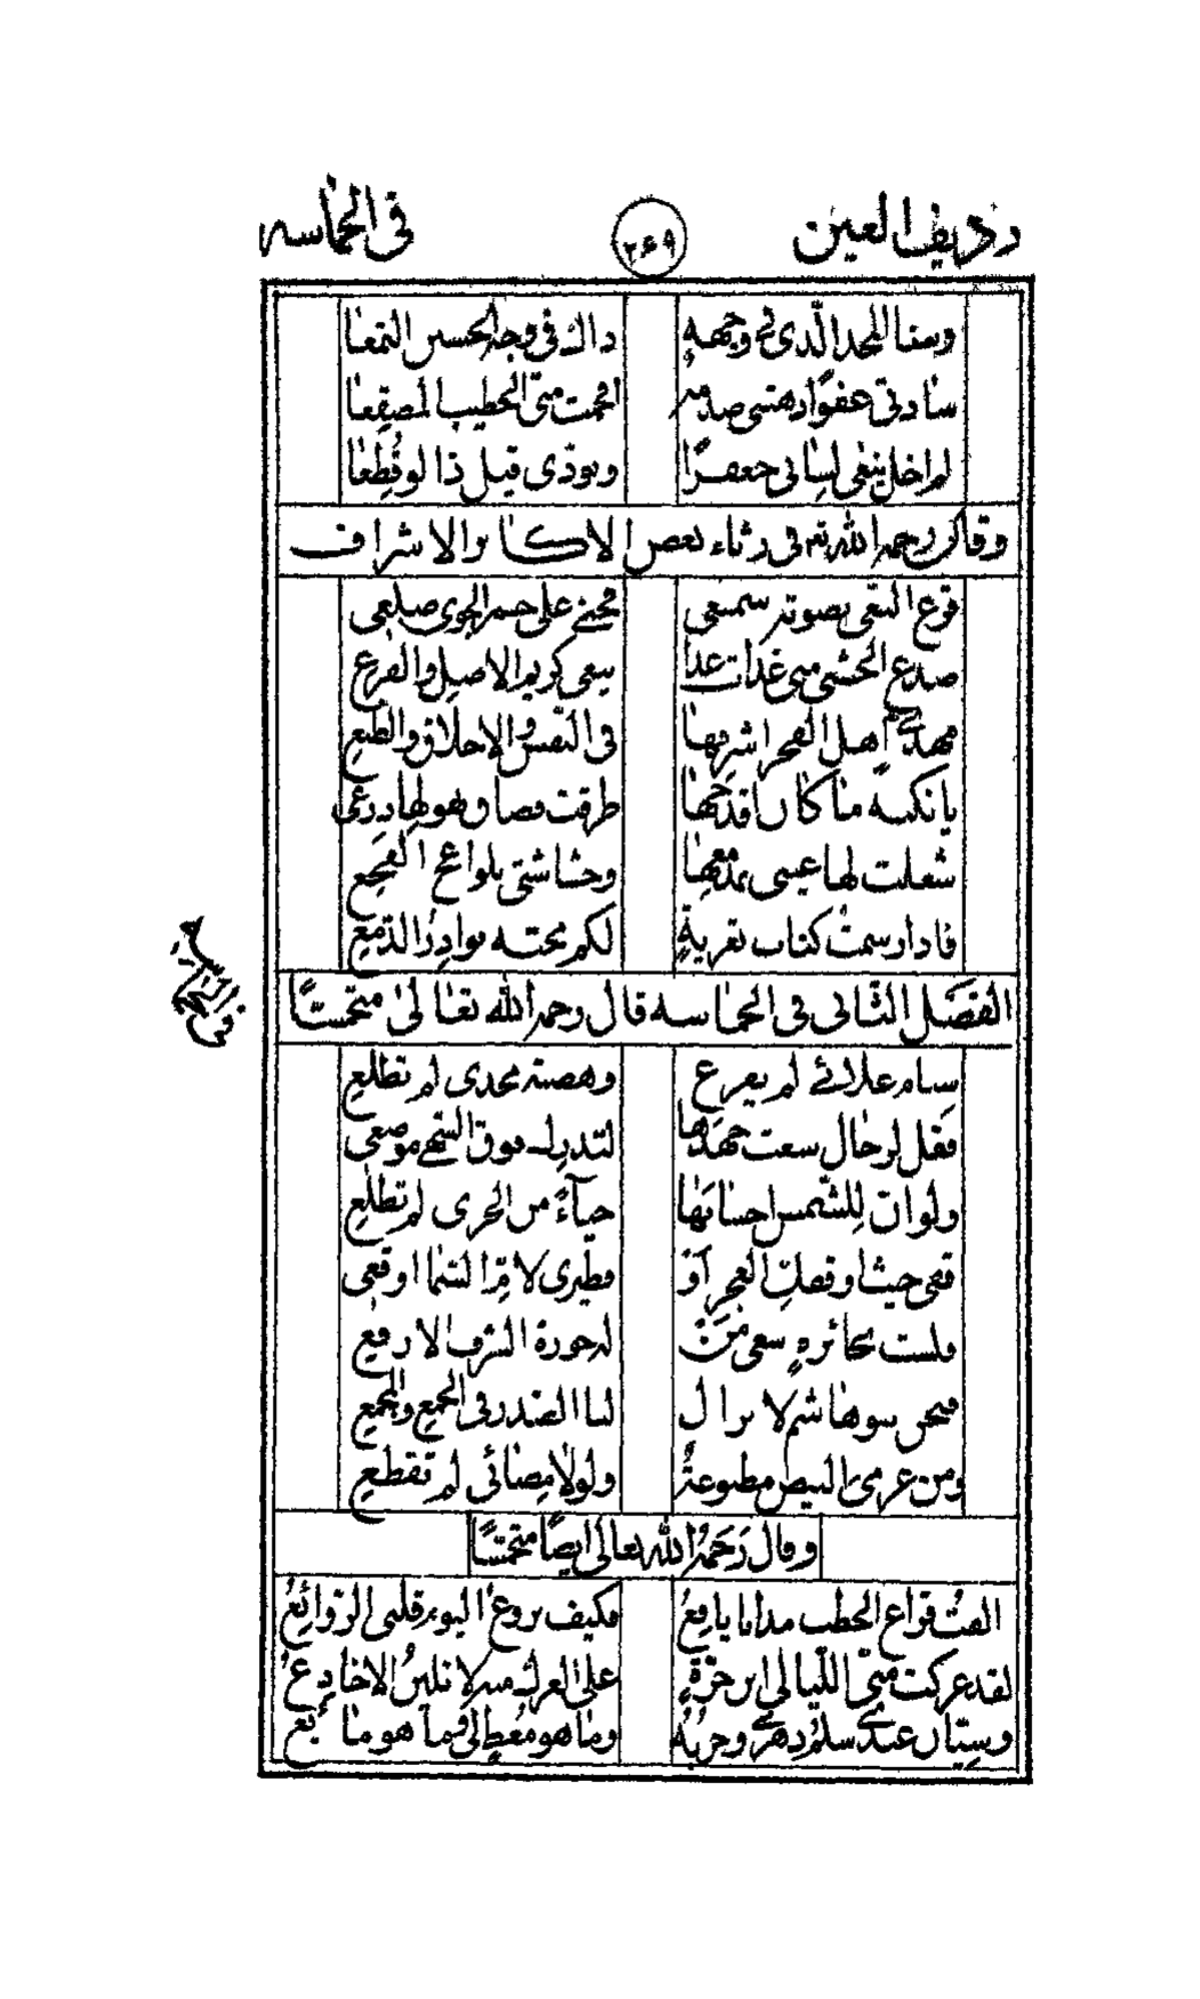 رديف العين ٢٦٩ فى الحماسه
وسنا المجد الّذى فى وجهه ذاك فى وجه الحسين التمعا
سادتى عفوًا دهتنى صدمة افحمت منّى الخطيب المصقعا
لم اخل ينعى لسانى جعفرًا وبودّى قبل ذا لو قُطِعا
وقال رحمه الله تع فى رثاء بعض الاكابر الاشراف
قرع النعى بصوته سمعى فحنى على جمر الجوى ضلعى
صدع الحشى منى غداة غدا ينعى كريم الاصل والفرع
اهل الفخر اشرفها فى النفس والاخلاق والطبع
يا نكبة ما كان افدحها طرقت فضاق بهولها ذرعى
شغلت لها عينى بمدمعها وحشاشتى بلواعج الفجع
فاذا رسمت كتاب تعزية لكم محته بوادر الدمع
الفصل الثانى فى الحماسه قال رحمه الله تعالى متحمسًا
فى الحماسه
سنام علائى لم يفرع وهضبة مجدى لم تطلع
فقل لرجال سعت جهدها لتدرك فوق السهى موضعى
ولو انّ للشمس احسابها حياءً من لم تطلع
قعى حيث اوفضلت العجز او فطيرى لامّ السما او قعى
فلست بحائزة سعى من له حوزة الشرف الارفع
فنحن بنو هاشم لا يزال لنا الصدر فى الجمع والمجمع
ومن عزمى البيض مطبوعةٌ ولولا مضائى لم تقطع
وقال رحمه الله تعالى ايضًا متحمسًا
الفت قراع الخطب مذ انا يافعُ فكيف يروع اليوم قلبى الروائعُ
لقد عركت منّى الليالى ابن حرّةٍ على العرك منه لا تلين الاخادعُ
وسيّان عندى سلم دهرى وحربُه وما هو معطٍ لى وما هو مانعُ